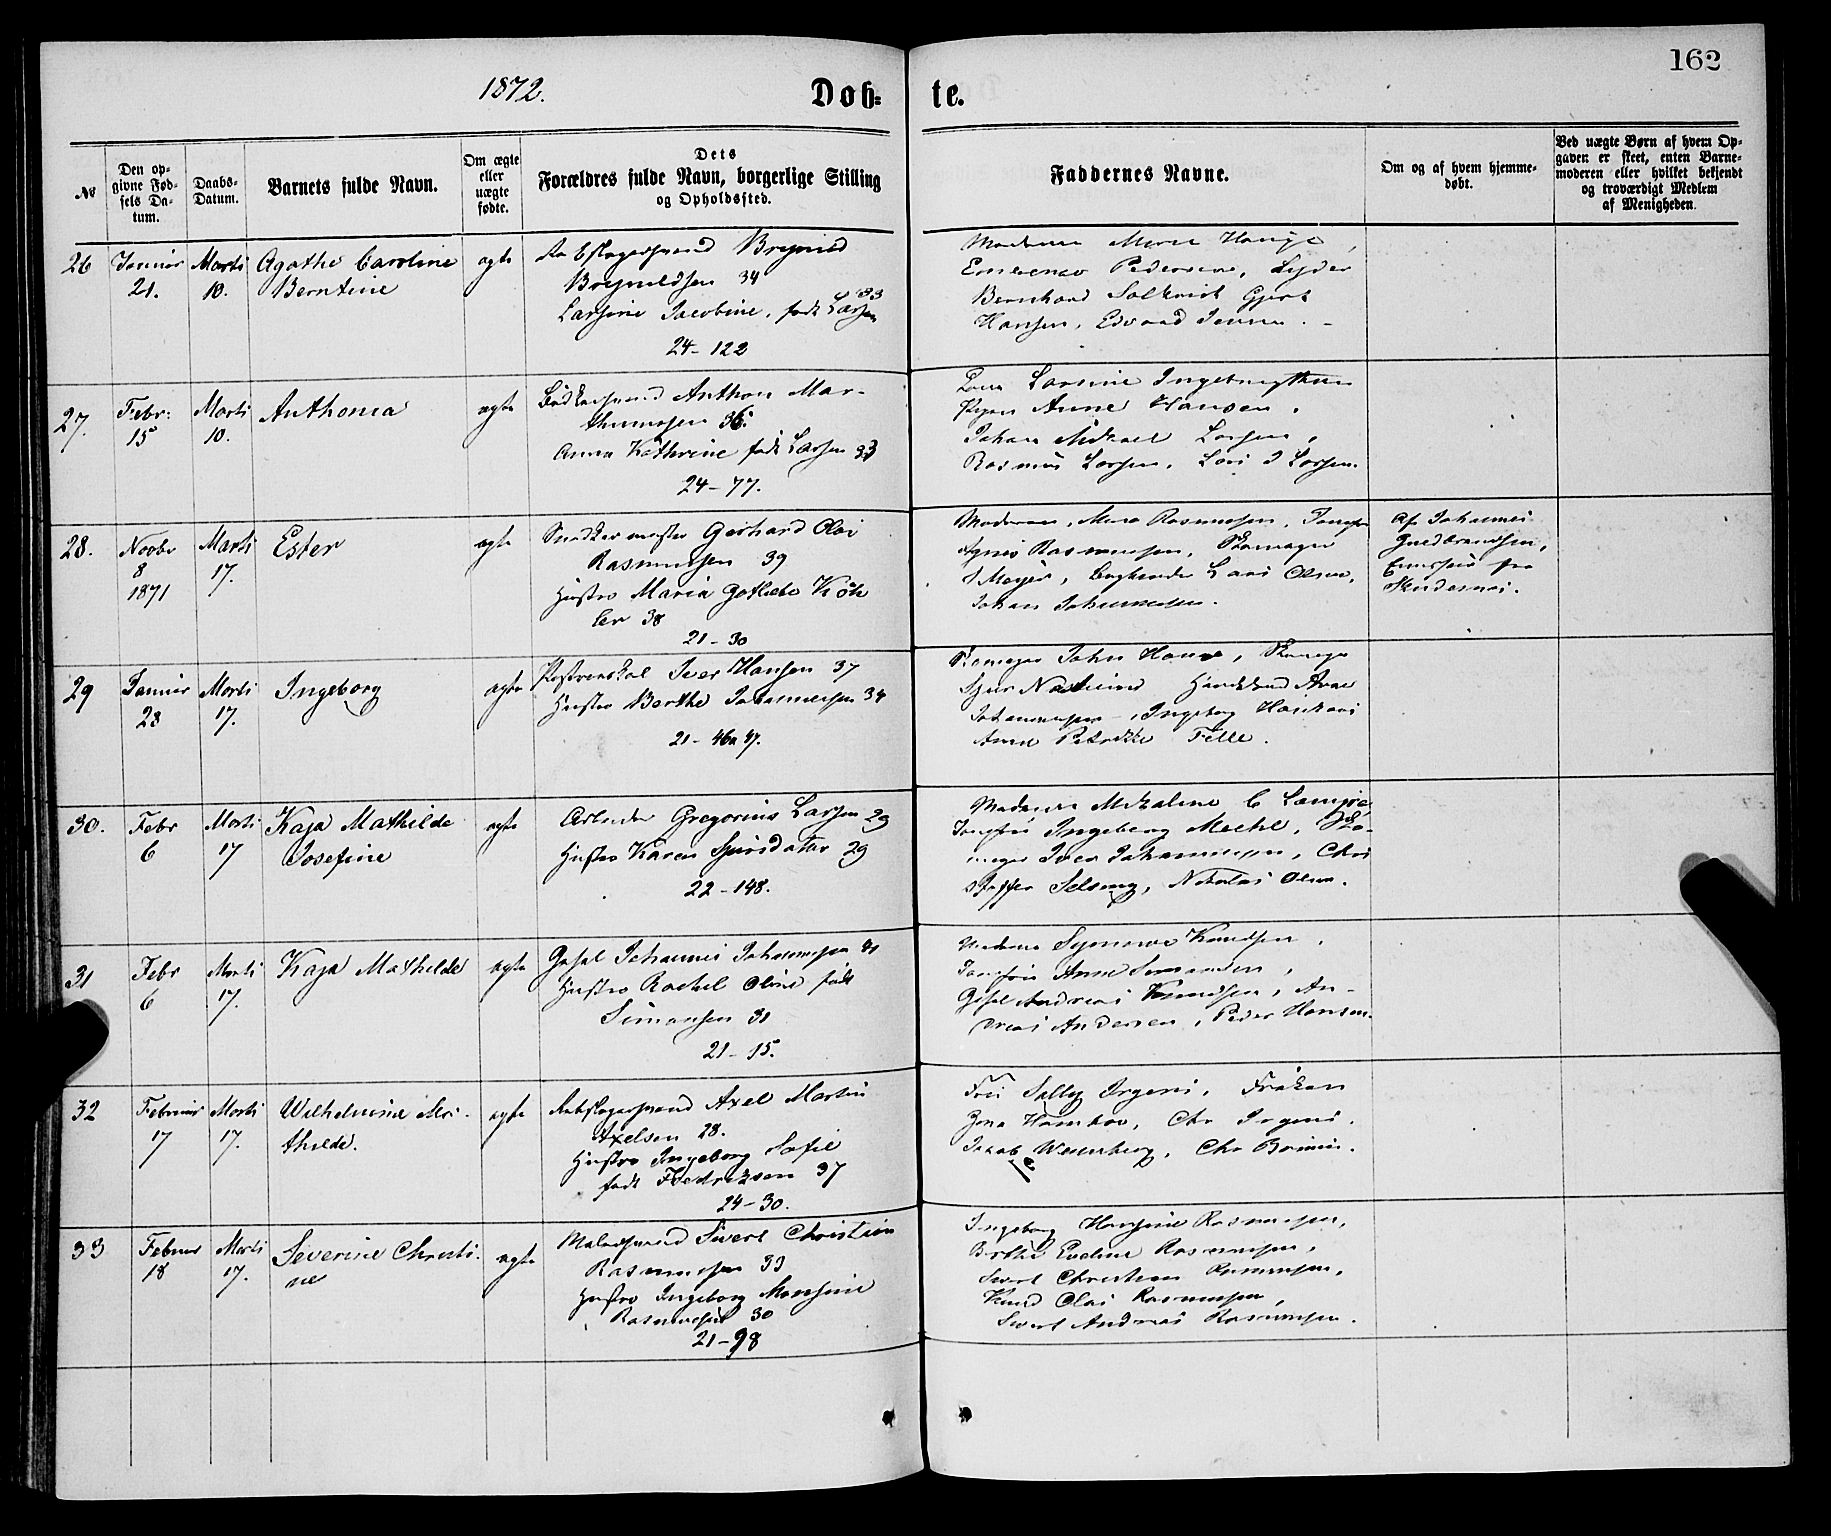 162
1872.
Døb-
te.
№
Den op-
givne Fød-
sels Da-
tum.
Daabs-
Datum.
Barnets fulde Navn.
Om ægte
eller
uægte
fødte.
Dets
Forældres fulde Navn, borgerlige Stilling
og Opholdssted.
Faddernes Navne.
Om og af hvem hjemme-
døbt.
Ved uægte Børn af hvem Op-
gaven er skeet, enten Barne-
moderen eller hvilket bekjendt
og troværdigt Medlem
af Menigheden.
26
Januar
21.
Marts
10.
Agathe Caroline
Berntine
ægte
Brynild
Brynildsen 34
Larsine Jacobine, født Larsen 33
24-122
Madamme
Pedersen,
Bernhard Gjert
Hansen, Edvard Jensen.
27.
Febr:
15
Marts
10.
Anthonia
ægte
Bødkersvend Anthon Mar-
thinussen 36.
Anna Kathrine født Larsen 33
24-77.
Larsine
Anne Hansen,
Johan Mikael Larsen,
Rasmus Larsen, Lars J Larsen.
28.
Novbr
8
1871
Marts
17.
Ester
ægte
Snedkermester Gerhard Olai
Rasmussen 39
Hustro Maria Gotliebe Köh
ler 38
21-30
Rasmussen, Jomfru
Agnes Rasmussen,
Meyer, Lars Olsen,
Johan Johannessen.
Af Johannes
Gundersen,
fra
29
Januar
28
Marts
17.
Ingeborg
ægte
Iver Hansen 37
Hustro Berthe Johannessen 34
21-46a 47.
John
Johannessen, Ingeborg
Anne
30.
Febr
6
Marts
17
Kaja Mathilde
Josefine
ægte
Arbeider Gregorius Larsen 29
Hustro Karen Sjursdatter 29
22-148.
Madamme
Jomfru Ingeborg Skoe-
mager Iver Johannessen, Chri
stoffer Nikolai Olsen.
31
Febr
6
Marts
17.
Kaja Mathilde
ægte
Gesel Johannes Johannessen 41
Hustro Rachel Oline født
Simonsen 31
21-15.
Madamme Knudsen,
Jomfru Anne
Gesel Andreas Knudsen, An-
dreas Andersen, Peder Hansen.
32
Februar
17
Marts
17.
Wilhelmine Ma-
thilde.
ægte
Axel Martin
Axelsen 28.
Hustro Ingeborg Sofie
født Fredriksen 37
24-30.
Sally Irgens, Frøken
Chr Irgens.
Jakob Wesenberg, Chr
33
Februar
18
Marts
17.
Severine Christi-
ne
ægte
Malersvend Sivert Christian
Rasmussen 33
Hustro Ingeborg Monsine
Rasmussen 30
21-98
Ingeborg Hansine Rasmussen,
Berthe Eveline Rasmussen,
Sivert Christian Rasmussen,
Knud Olai Rasmussen,
Sivert Andreas Rasmussen.